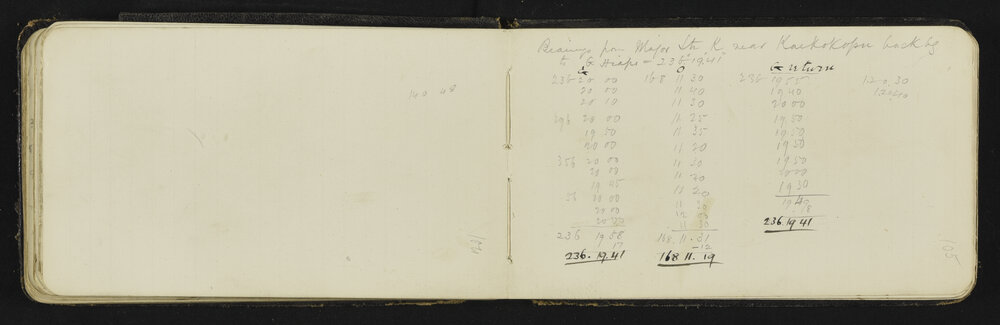 140 48
Bearings from Major Stn K near Kaikokopu back bg
to G Hiapo = 236° 19' 41"
G O G return
236 20 00 168 11 30 236 19 55 12 0 30
20 00 11 40 19 40
20 10 11 30 20 00
296 20 00 11 25 19 50
19 50 11 35 19 50
20 00 11 20 19 50
356 20 00 11 30 19 50
20 00 11 20 20 00
19 45 11 20 19 30
56 20 00 11 30 19
20 00 12 00 8
20 20 11 30 236. 19 41
236 19 58 168. 11. 31
17 -12
236. 19. 41 168 11. 19
105